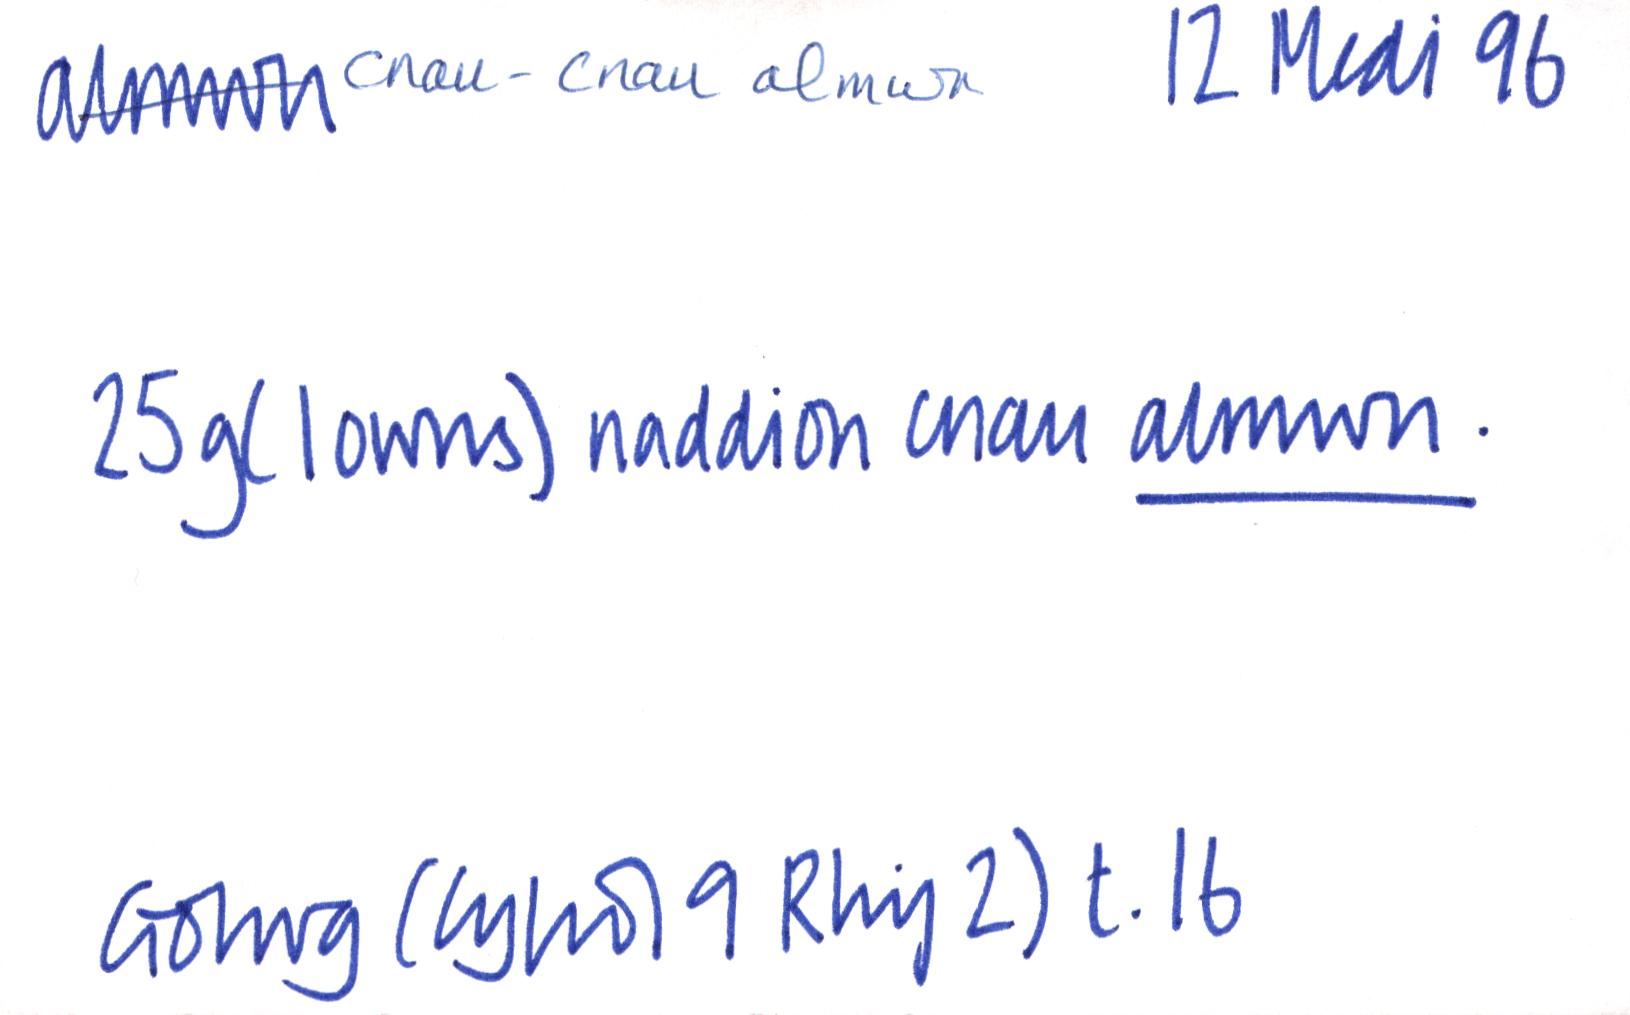 almwn cnau - cnau almwn 12 Medi 96
25g (1 owns) naddion cnau almwn.
Golwg (Cyfrol 9 Rhif 2) t. 16